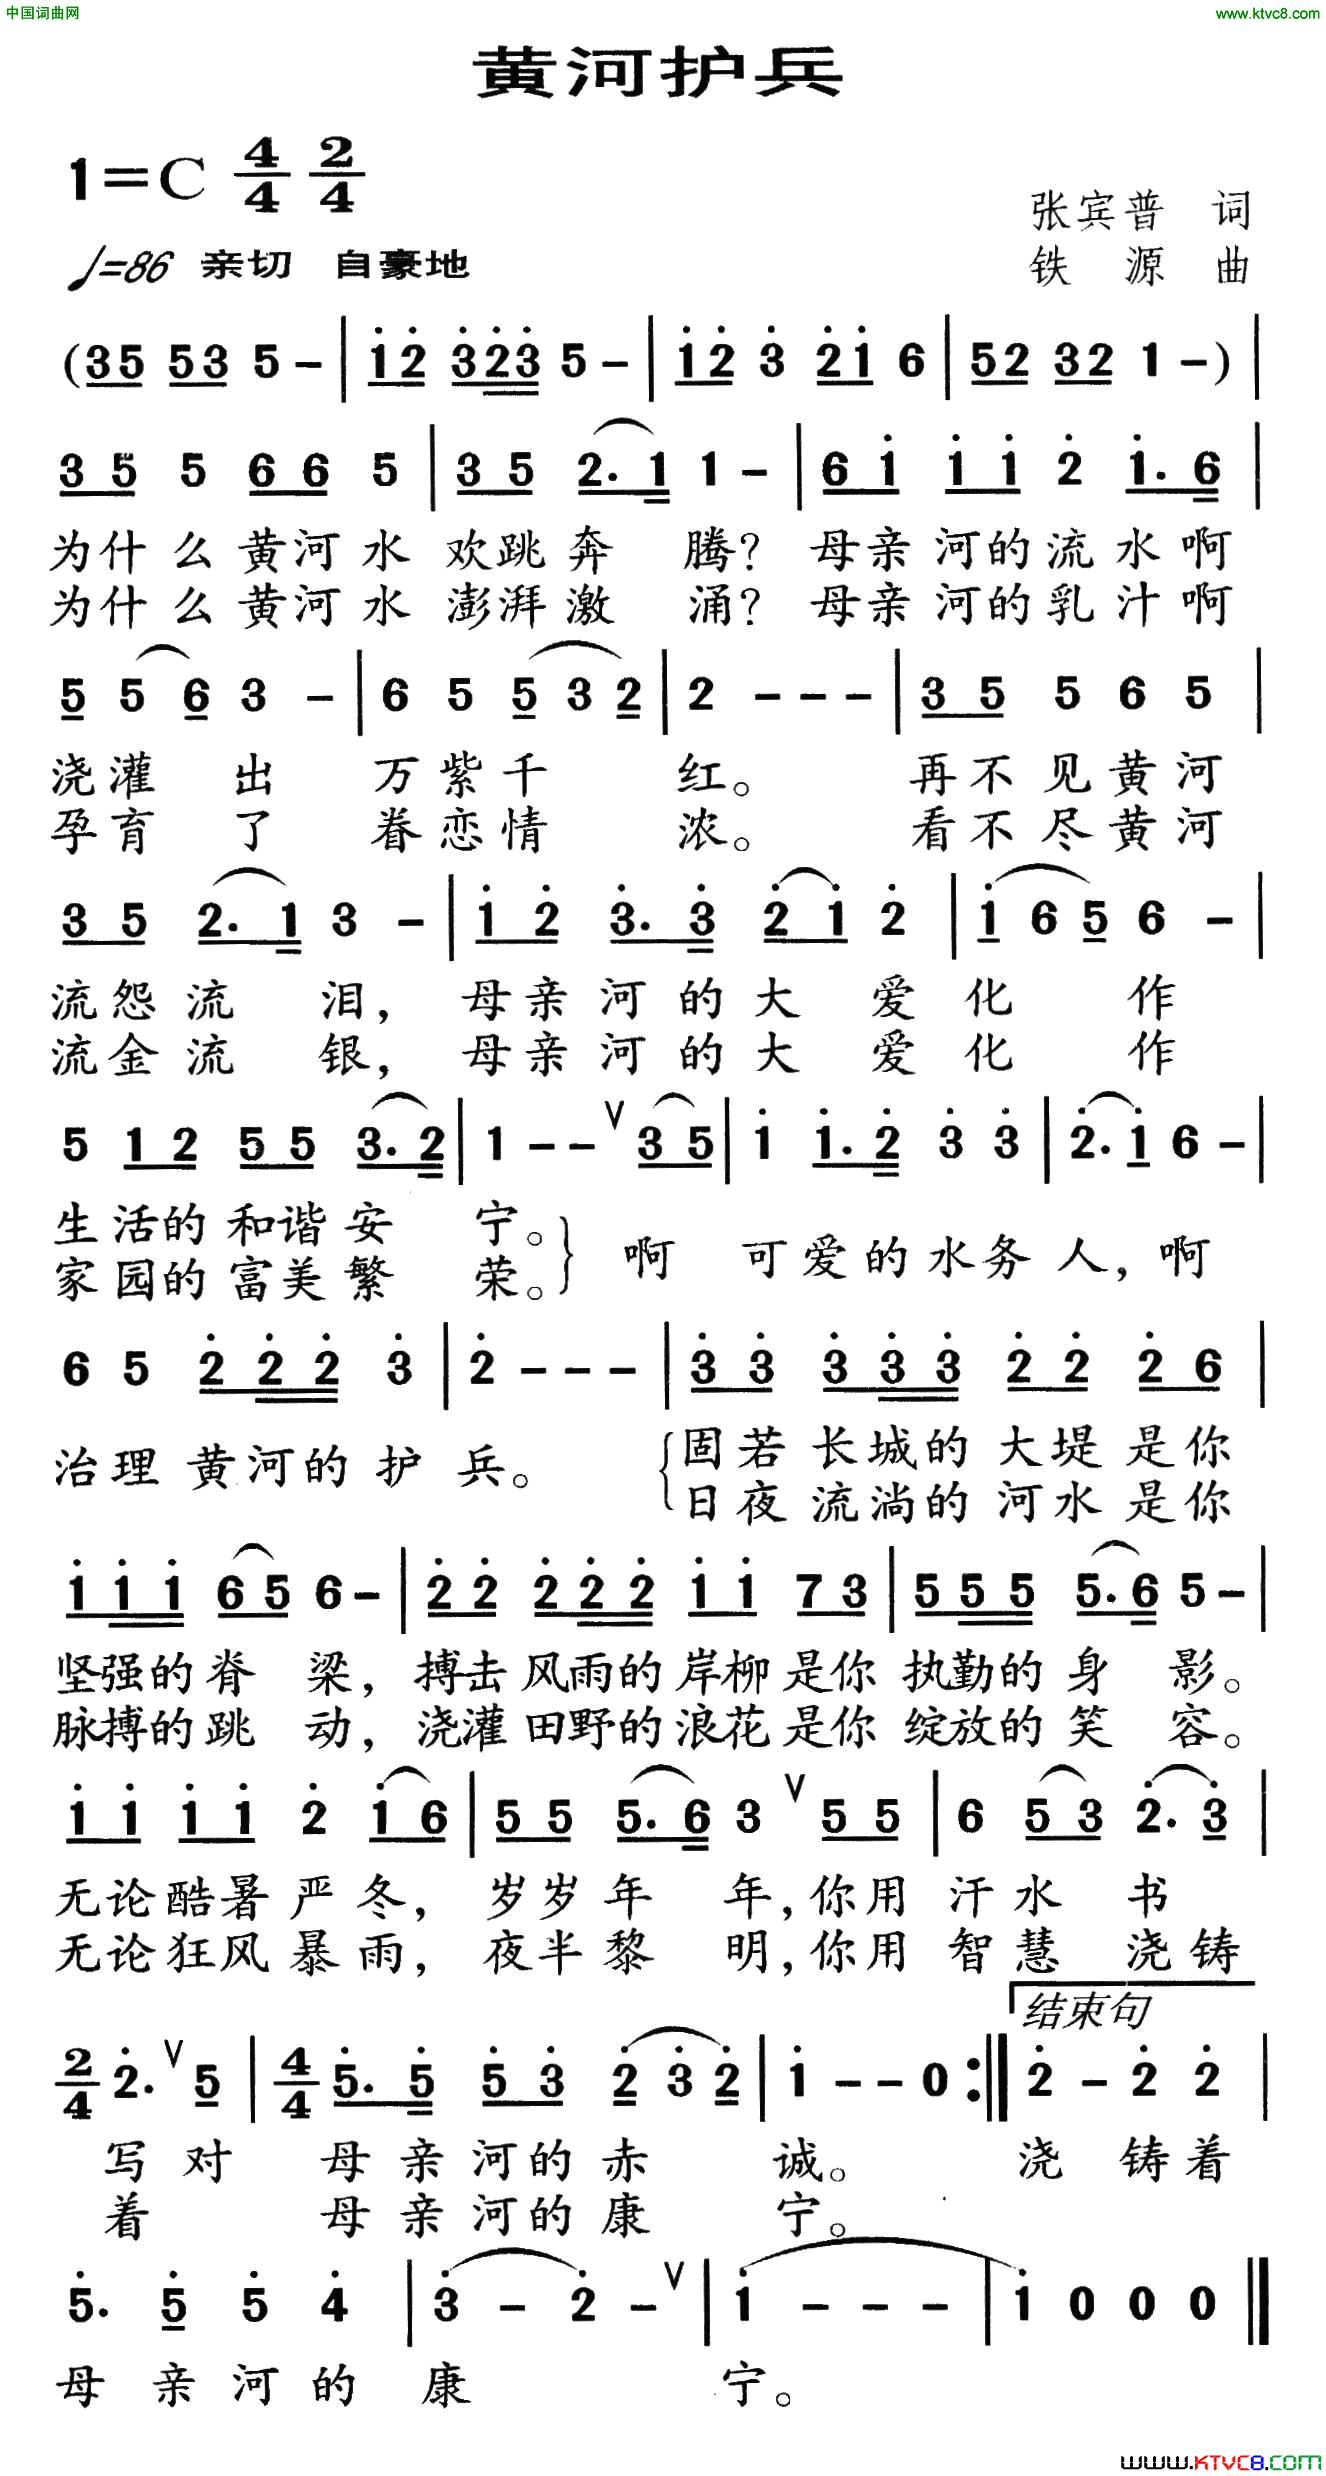 中国词曲网
www.ktvc8.com
黄河护兵
1=C 4/4 2/4
张宾普 词
♩=86 亲切 自豪地
铁 源 曲
(35 53 5 - | i̇2̇ 3̇2̇3̇ 5 - | i̇2̇ 3̇ 2̇i̇ 6 | 52 32 1 -) |
3 5 5 6 6 5 | 3 5 2. 1 1 - | 6 i̇ i̇ i̇ 2̇ i̇. 6 |
为什么黄河水 欢跳奔 腾？ 母亲河的流水啊
为什么黄河水 澎湃激 涌？ 母亲河的乳汁啊
5 5 6 3 - | 6 5 5 3 2 | 2 - - - | 3 5 5 6 5 |
浇灌 出 万紫千 红。 再不见黄河
孕育 了 眷恋情 浓。 看不尽黄河
3 5 2. 1 3 - | i̇ 2̇ 3̇. 3̇ 2̇ i̇ 2̇ | i̇ 6 5 6 - |
流怨流 泪， 母亲河的大 爱化 作
流金流 银， 母亲河的大 爱化 作
5 1 2 5 5 3. 2 | 1 - - ∨ 3 5 | i̇ i̇. 2̇ 3̇ 3̇ | 2̇. i̇ 6 - |
生活的和谐安 宁。
家园的富美繁 荣。} 啊 可爱的水务人，啊
6 5 2̇ 2̇ 2̇ 3̇ | 2̇ - - - | 3̇ 3̇ 3̇ 3̇ 3̇ 2̇ 2̇ 2̇ 6 |
治理黄河的护 兵。 {固若长城的大堤是你
日夜流淌的河水是你
i̇ i̇ i̇ 6 5 6 - | 2̇ 2̇ 2̇ 2̇ 2̇ i̇ i̇ 7 3 | 5 5 5 5. 6 5 - |
坚强的脊 梁，搏击风雨的岸柳是你执勤的身 影。
脉搏的跳 动，浇灌田野的浪花是你绽放的笑 容。
i̇ i̇ i̇ i̇ 2̇ i̇ 6 | 5 5 5. 6 3 ∨ 5 5 | 6 5 3 2̇. 3̇ |
无论酷暑严冬，岁岁年 年，你用汗水书
无论狂风暴雨，夜半黎 明，你用智慧浇铸
结束句
2/4 2̇. ∨ 5 | 4/4 5̇. 5̇ 5̇ 3̇ 2̇ 3̇ 2̇ | i̇ - - 0 :‖ 2̇ - 2̇ 2̇ |
写对 母亲河的赤 诚。 浇 铸着
着 母亲河的康 宁。
5̇. 5̇ 5̇ 4̇ | 3̇ - 2̇ - ∨ | i̇ - - - | i̇ 0 0 0 ‖
母 亲河的 康 宁。
www.KTVC8.COM